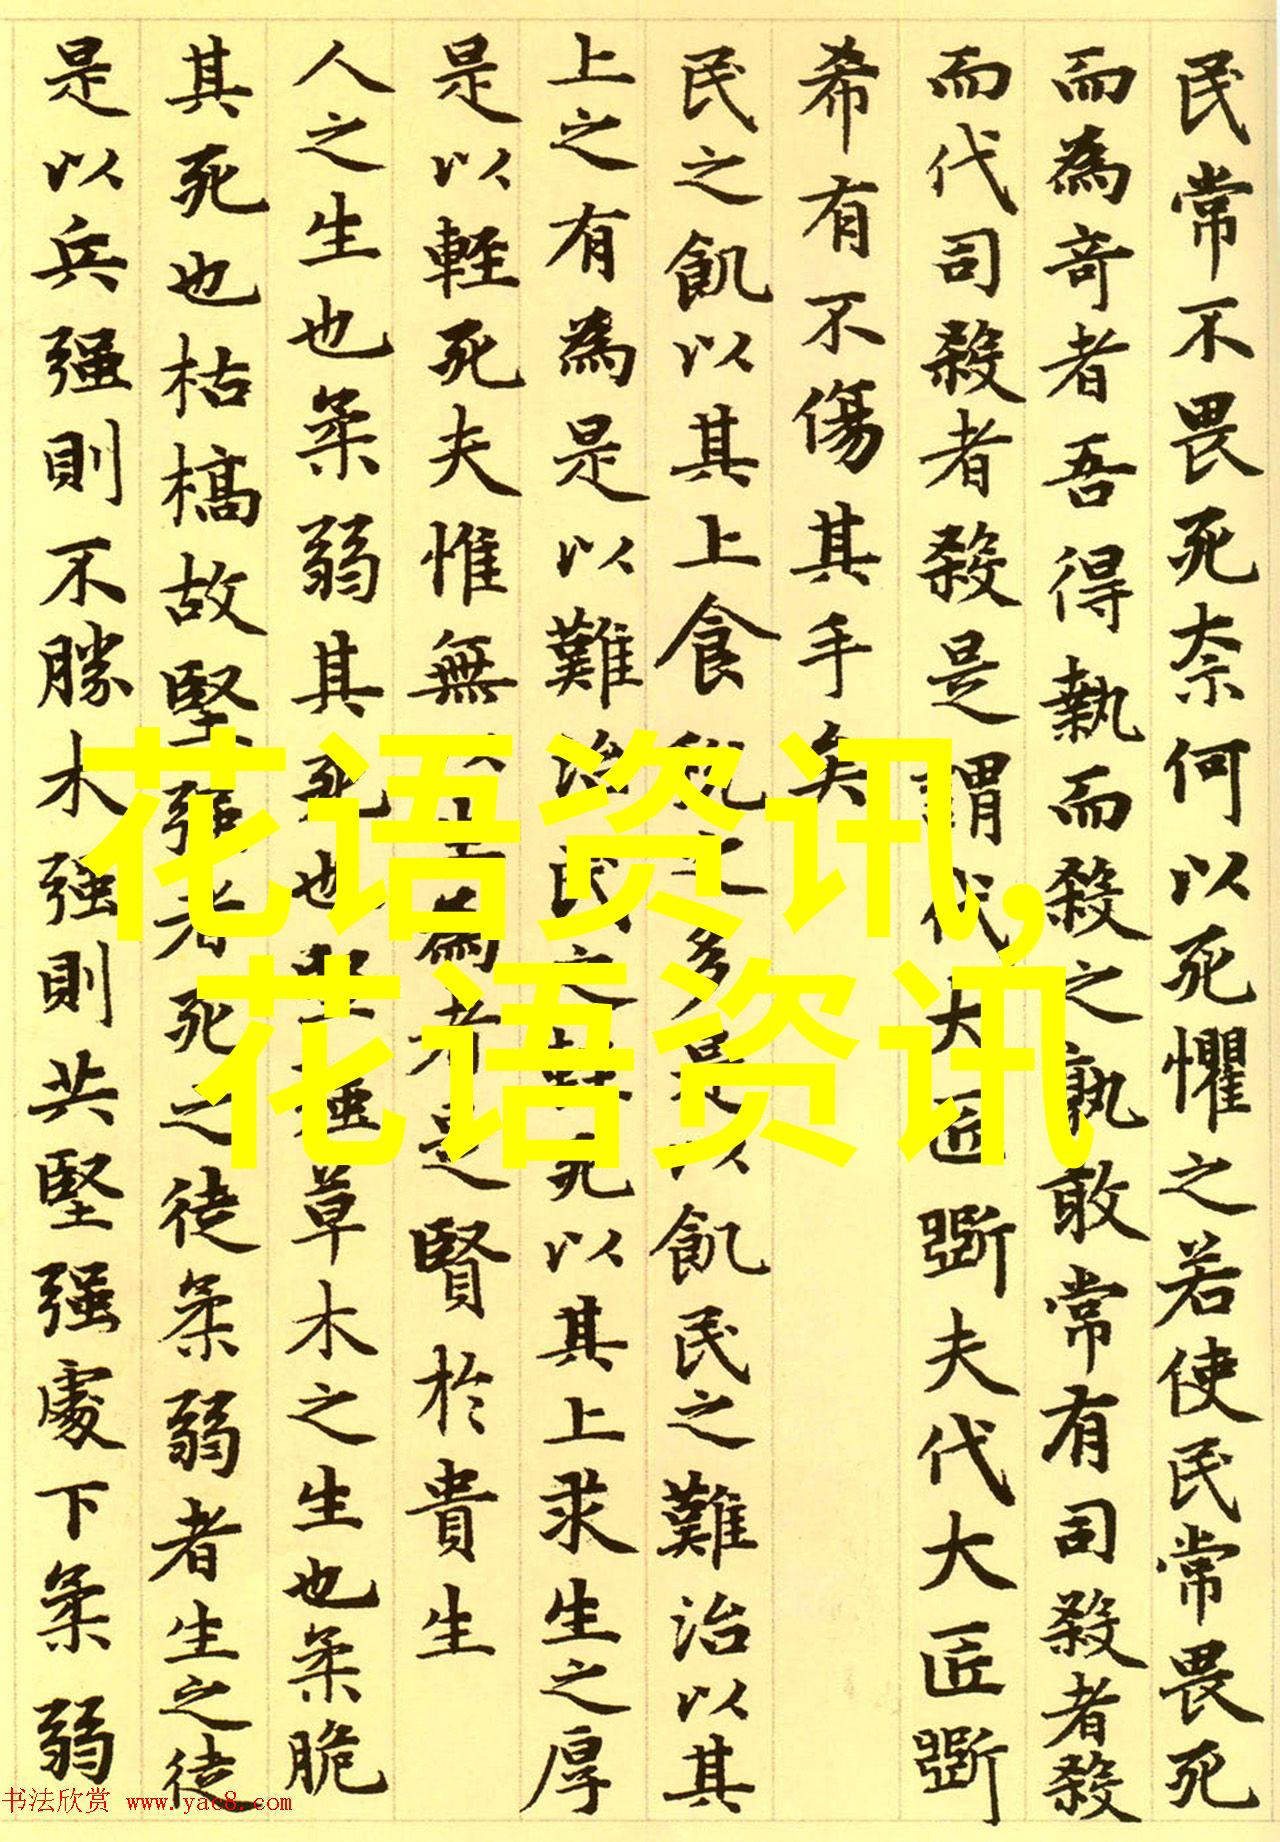 民常不畏死奈何以死懼之若使民常畏死
而為奇者吾得執而殺之孰敢常有司殺者殺
而代司殺者殺是謂代大匠斲夫代大匠斲
希有不傷其手矣
民之飢以其上食稅之多是以飢民之難治以其
上之有為是以難治民之輕死以其上求生之厚
是以輕死夫惟無以生為者是賢於貴生
人之生也柔弱其死也堅强草木之生也柔脆
其死也枯槁故堅强者死之徒柔弱者生之徒
是以兵强則不勝木强則共堅强處下柔弱
花语资讯,
花语资讯
书法欣赏 www.yac8.com